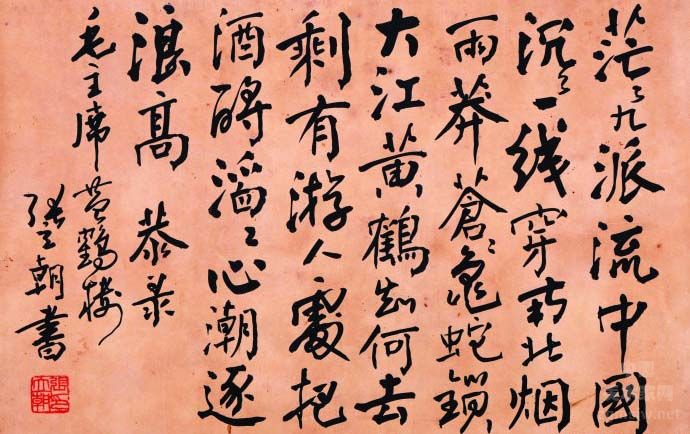 茫〻九派流中國
沉〻一线穿南北烟
雨莽蒼〻龜蛇鎖
大江黄鶴知何去
剩有游人處把
酒酹滔〻心潮逐
浪高 恭录
毛主席黄鶴楼
张朝書